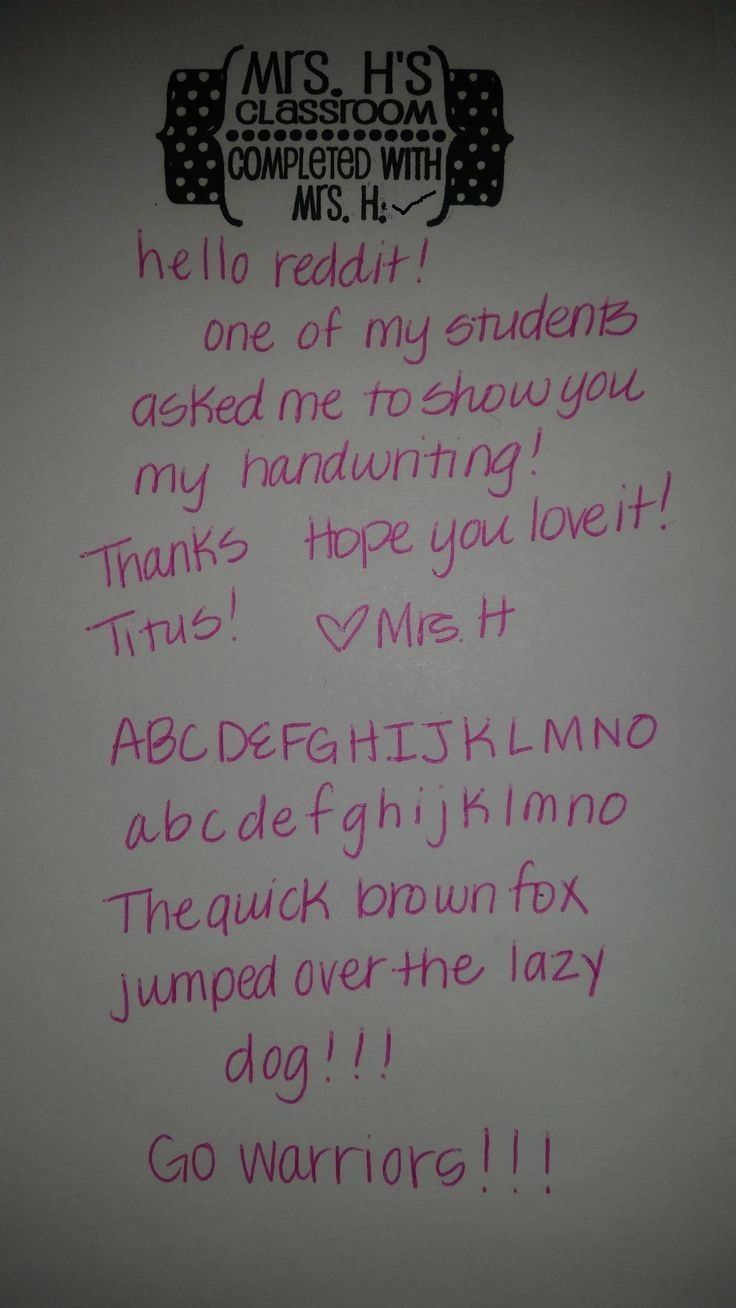 Mrs. H's
Classroom
Completed with
Mrs. H.
hello reddit!
one of my students
asked me to show you
my handwriting!
Thanks Hope you love it!
Titus! ♡ Mrs. H
ABCDEFGHIJKLMNO
abcdefghijklmno
The quick brown fox
jumped over the lazy
dog!!!
Go Warriors!!!